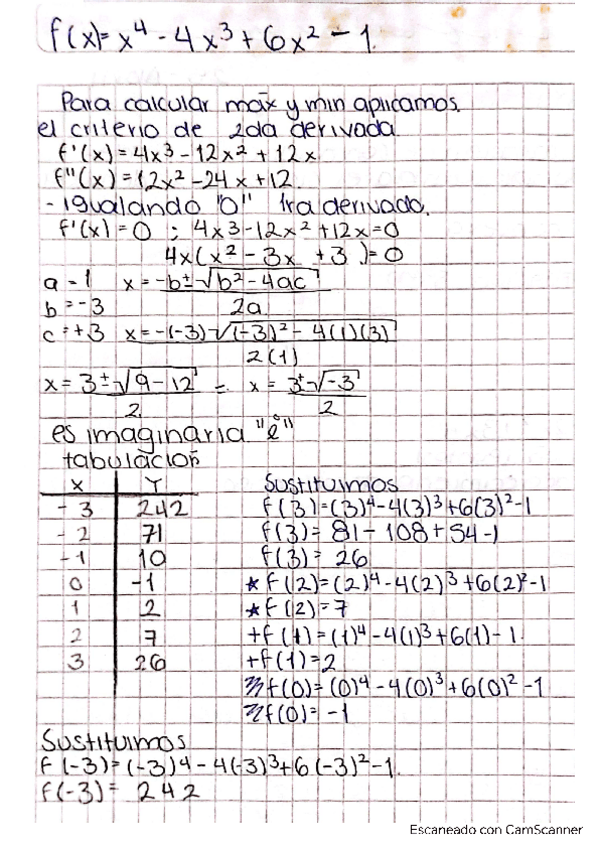 f(x)= x⁴ - 4x³ + 6x² - 1.
Para calcular max y min aplicamos.
el criterio de 2da derivada
f'(x) = 4x³ - 12x² + 12x
f''(x) = 12x² - 24x + 12.
- igualando "0" 1ra derivado.
f'(x) = 0 ; 4x3 - 12x² + 12x = 0
4x(x² - 3x + 3) = 0
a = 1 x = -b ± √b² - 4ac / 2a
b = -3
c = +3 x = -(-3) √(-3)² - 4(1)(3) / 2(1)
x = 3 ± √9 - 12 / 2. = x = 3 ± √-3 / 2
es imaginaria "i"
tabulación
x Y Sustituimos
-3 242 f(3) = (3)⁴ - 4(3)³ + 6(3)² - 1
-2 71 f(3) = 81 - 108 + 54 - 1
-1 10 f(3) = 26
0 -1 * f(2) = (2)⁴ - 4(2)³ + 6(2)² - 1
1 2 * f(2) = 7
2 7 + f(1) = (1)⁴ - 4(1)³ + 6(1) - 1.
3 26 + f(1) = 2
f(0) = (0)⁴ - 4(0)³ + 6(0)² - 1
f(0) = -1
Sustituimos
f(-3) = (-3)4 - 4(-3)³ + 6(-3)² - 1.
f(-3) = 242
Escaneado con CamScanner